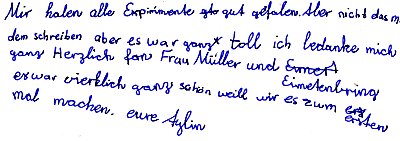 Mir halen alle Expirimente gut gefalen. Aber nicht das m.
dem schreiben aber es war ganz toll ich ledanke mich
ganz Herzlich fon Frau Müller und
es war vierklich ganz schön weill wir es zum ersten
mal machen. eure Aylin